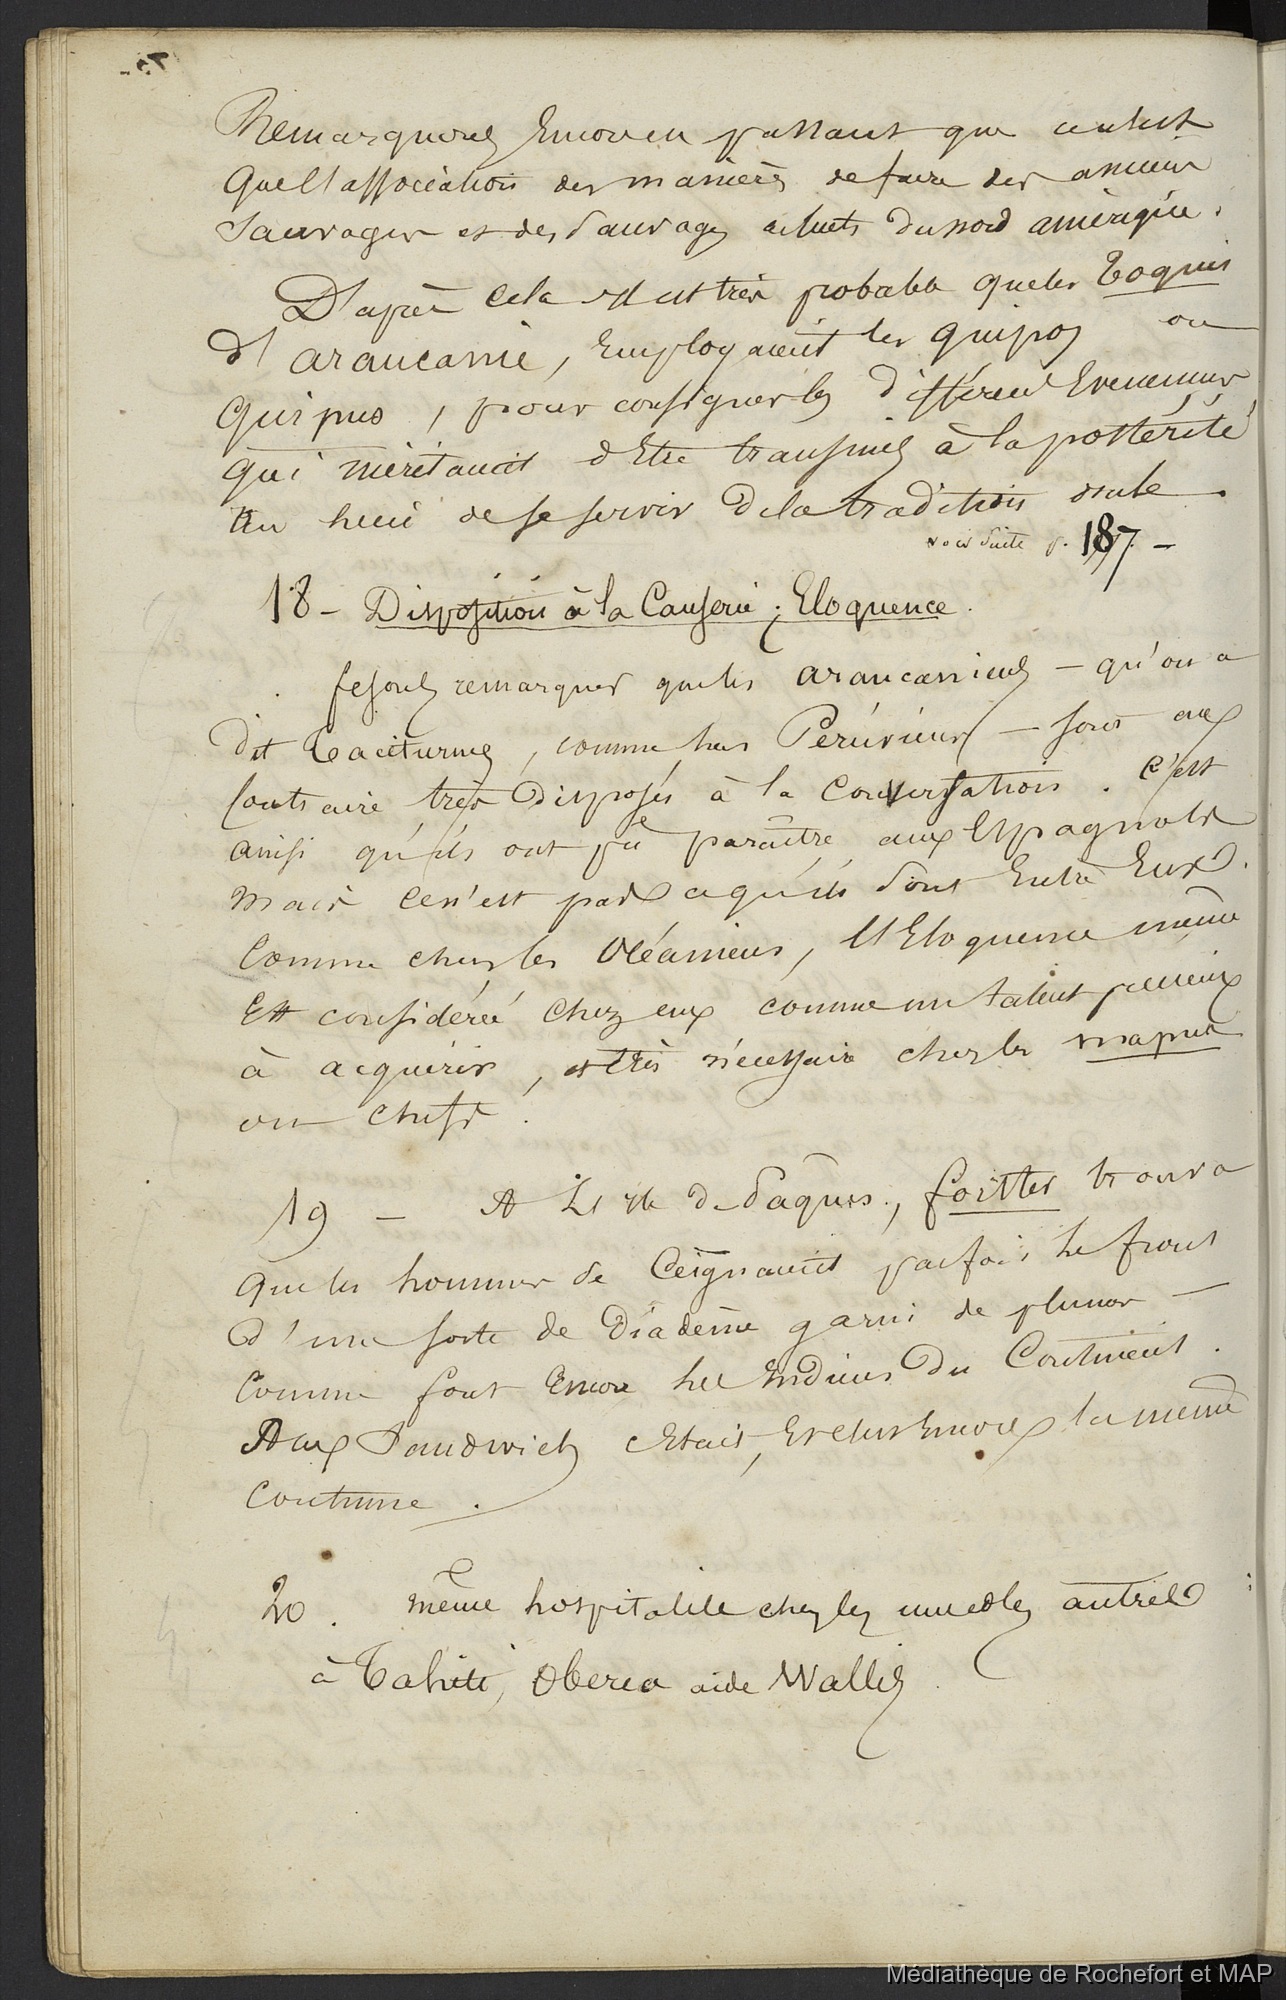 Remarquons Encore en passant que ce n'est
Que l'association des manières de faire des anciens
Sauvages et des Sauvages actuels du nord amérique.
D'après Cela il est très probable que les Toquis
d'araucanie, Employaient les quipos ou
Quipus, pour consigner les différens Evenemens
qui méritaient d'Etre transmis à la postérité
au lieu de se servir De la tradition orale.
voir suite p. 187. -
18 - Disposition à la Causerie; Eloquence.
fesons remarquer que les araucaniens - qu'on a
dit Taciturnes, comme les Péruviens - sont au
Contraire très Disposés à la Conversation. C'est
ainsi qu'ils ont pu paraître aux Espagnols
mais ce n'est pas ce qu'ils sont Entre Eux.
Comme chez les Océaniens, l'Eloquence même
Est considérée Chez eux comme un talent précieux
à acquérir, et très nécessaire chez les mapus
ou Chefs.
19 - A L'Ile De Pâques, forster trouva
que les hommes se Ceignaient parfois le front
d'une sorte de Diadème garni de plumes -
Comme font Encore les Indiens Du Continent.
Aux Sandwich c'Etait, Et c'est Encore la même
Coutume.
20. même hospitalité chez les uns et les autres :
à Tahiti, Oberea aide Wallis
Médiathèque de Rochefort et MAP